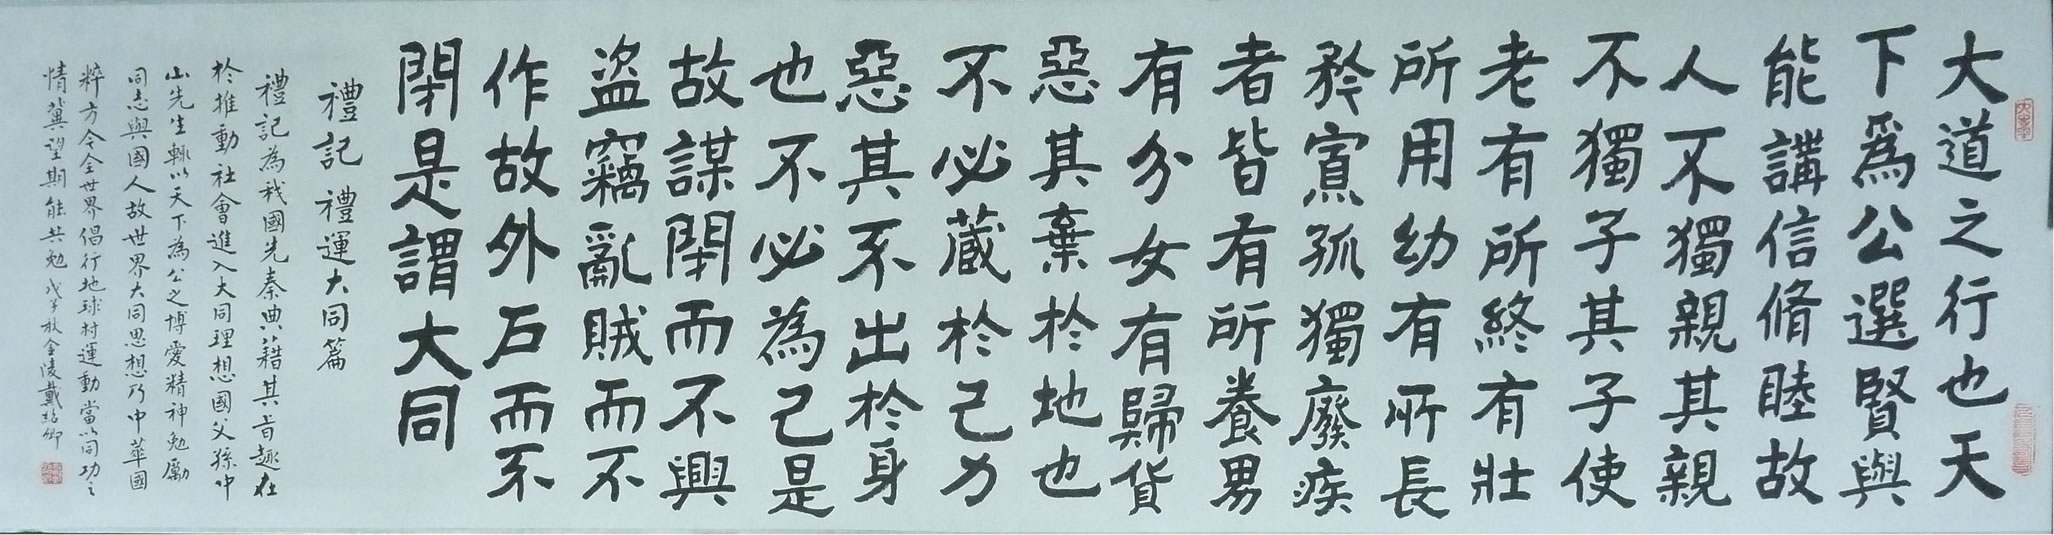 大道之行也天
下為公選賢與
能講信脩睦故
人不獨親其親
不獨子其子使
老有所終有壯
所用幼有所長
矜寡孤獨廢疾
者皆有所養男
有分女有歸貨
惡其棄於地也
不必藏於己力
惡其不出於身
也不必為己是
故謀閉而不興
盜竊亂賊而不
作故外戶而不
閉是謂大同
禮記禮運大同篇
禮記為我國先秦典籍其旨趣在
於推動社會進入大同理想國父孫中
山先生輒以天下為公之博愛精神勉勵
同志與國人故世界大同思想乃中華國
粹方今全世界倡行地球村運動當以同功之
情冀望期能共勉戊子秋金陵戴卿